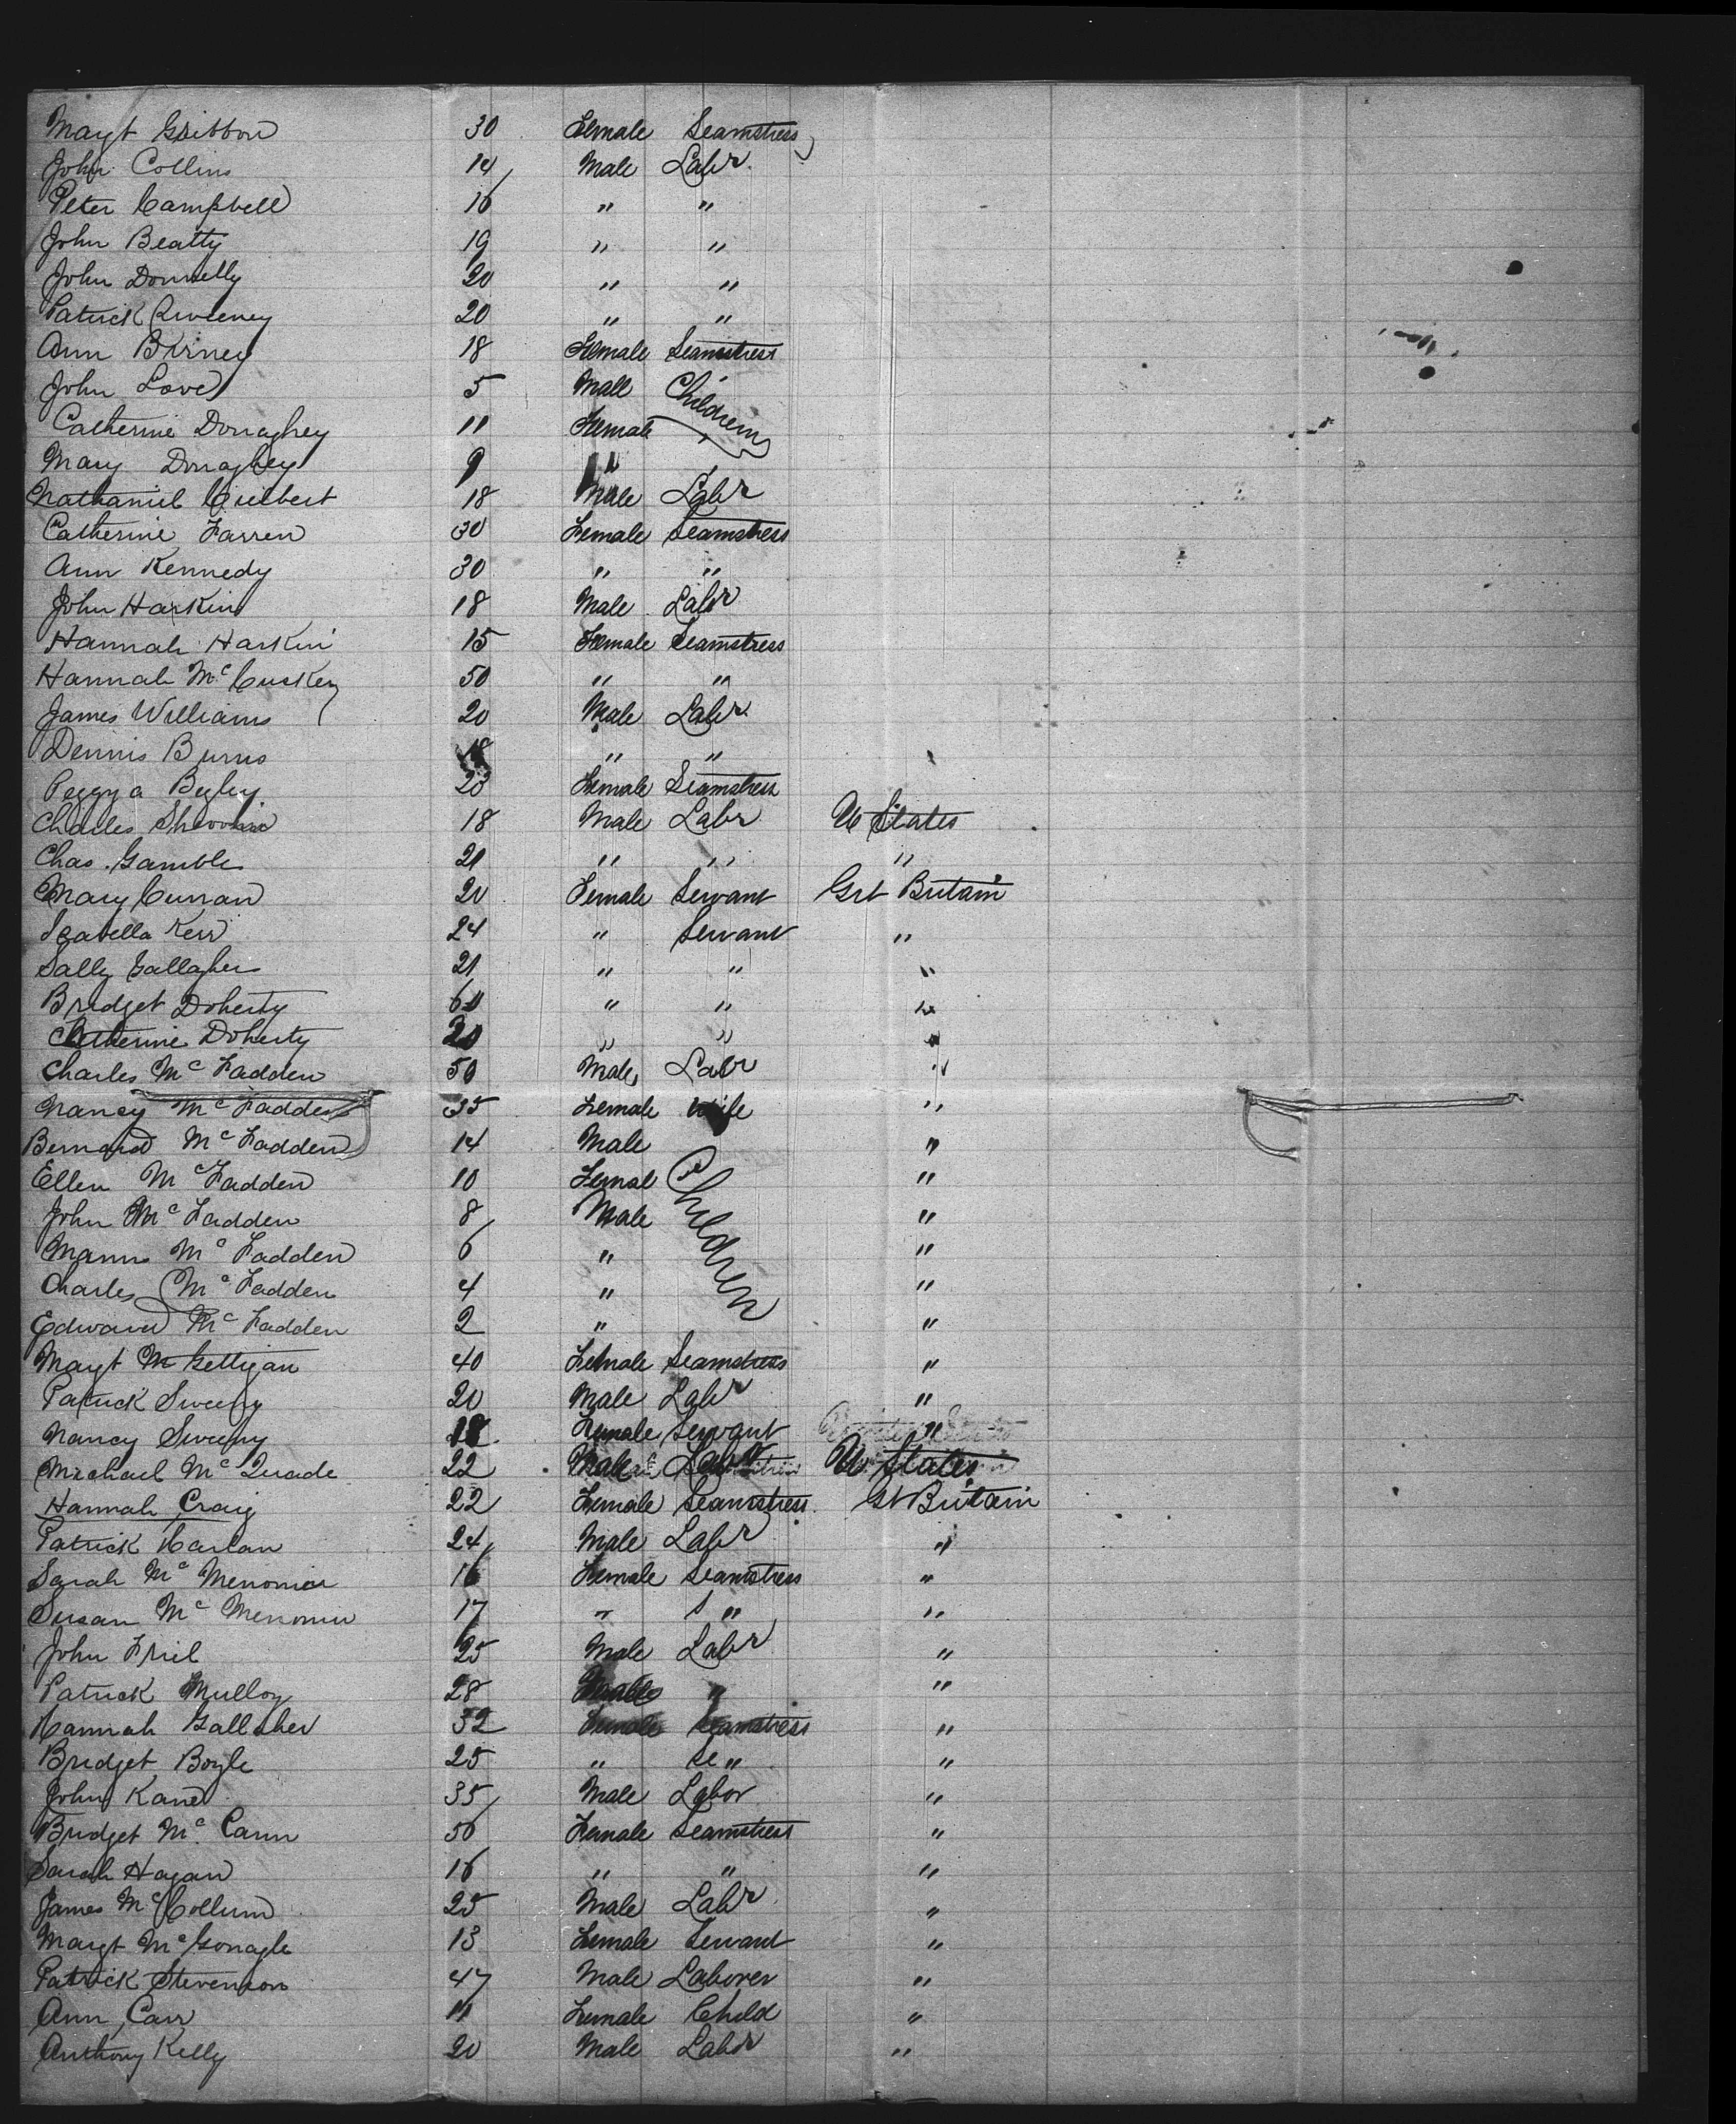 Margt Gribbon 30 Female Seamstress
John Collins 14 Male Labr
Peter Campbell 16 " "
John Beatty 19 " "
John Donnelly 20 " "
Patrick Sweeney 20 " "
Ann Birney 18 Female Seamstress
John Love 5 Male Children
Catherine Donaghey 11 Female
Mary Donaghey 9 "
Nathaniel Cuthbert 18 Male Labr
Catherine Farren 30 Female Seamstress
Ann Kennedy 30 " "
John Harkin 18 Male Labr
Hannah Harkin 15 Female Seamstress
Hannah McCuskey 50 " "
James Williams 20 Male Labr
Dennis Burns 18 " "
Peggy a Begley 20 Female Seamstress
Charles 18 Male Labr U States
Chas. Gamble 21 " " "
Mary Curran 20 Female Servant Grt Britain
Isabella Kerr 24 " Servant "
Sally Gallagher 21 " " "
Bridget Doherty 60 " " "
Catherine Doherty 20 " " "
Charles McFadden 50 Male Labr "
Nancy McFadden 35 Female Wife "
Bernard McFadden 14 Male "
Ellen McFadden 10 Femal Children "
John McFadden 8 Male "
Manus McFadden 6 " "
Charles McFadden 4 " "
Edward McFadden 2 " "
Margt McGettigan 40 Female Seamstress "
Patrick Sweeny 20 Male Labr "
Nancy Sweeny 18 Female Servant "
Michael McQuade 22 Male Labr U States
Hannah Craig 22 Female Seamstress Gt Britain
Patrick Harlan 24 Male Labr "
Sarah McMenomin 16 Female Seamstress "
Susan McMenomin 17 " S " "
John Friel 25 Male Labr "
Patrick Mulloy 28 Male " "
Hannah Gallaher 32 Female Seamstress "
Bridget Boyle 25 " Se " "
John Kane 35 Male Labor "
Bridget McCann 50 Female Seamstress "
Sarah Hagan 16 " " "
James McCollum 25 Male Labr "
Margt McGonagle 13 Female Servant "
Patrick Stevenson 47 Male Laborer "
Ann Carr 11 Female Child "
Anthony Kelly 20 Male Labor "